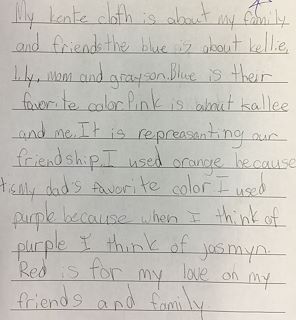 My kente cloth is about my family
and friends.the blue is about kellie,
lily, mom and grayson.Blue is their
favorite color.Pink is about kallee
and me.It is repreasanting our
friendship.I used orange because
it is my dad's favorite color I used
purple because when I think of
purple I think of jasmyn.
Red is for my love on my
friends and family